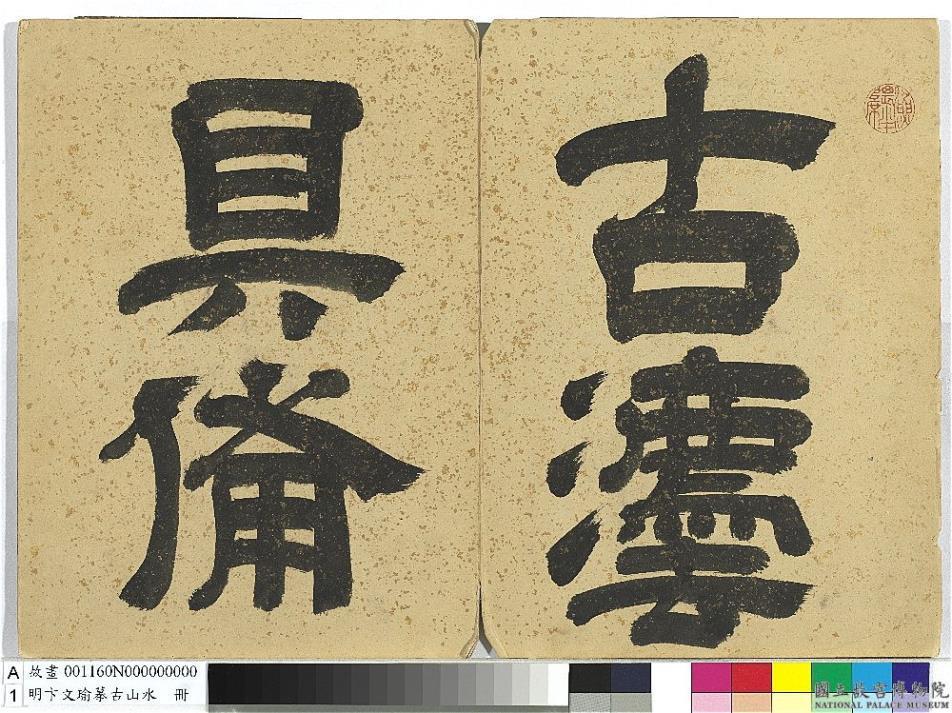 古灋
具備
A 故畫 001160N000000000
1 明卞文瑜摹古山水 冊
國立故宮博物院
NATIONAL PALACE MUSEUM